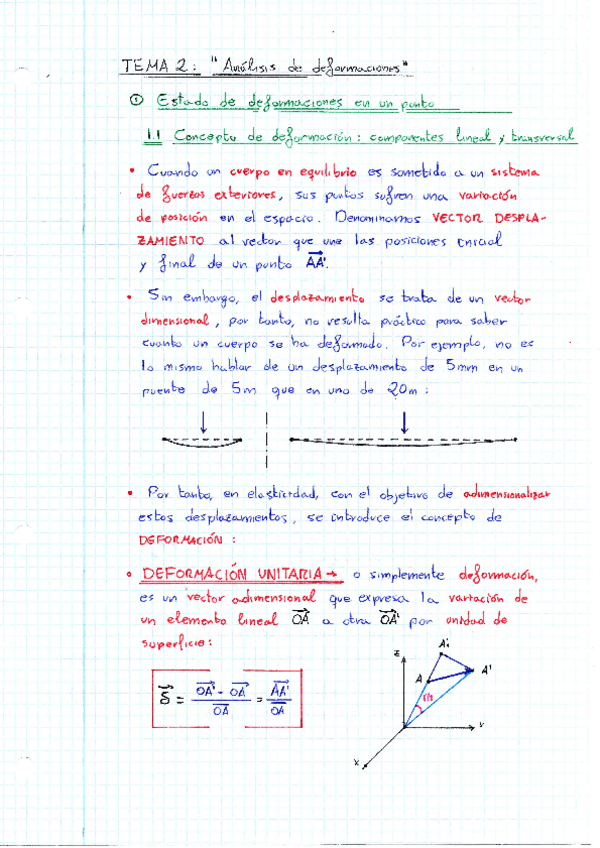 TEMA 2: "Análisis de deformaciones"
① Estado de deformaciones en un punto
1.1 Concepto de deformación: componentes lineal y transversal
• Cuando un cuerpo en equilibrio es sometido a un sistema
de fuerzas exteriores, sus puntos sufren una variación
de posición en el espacio. Denominamos VECTOR DESPLA-
ZAMIENTO al vector que une las posiciones inicial
y final de un punto AA'.
• Sin embargo, el desplazamiento se trata de un vector
dimensional, por tanto, no resulta práctico para saber
cuanto un cuerpo se ha deformado. Por ejemplo, no es
lo mismo hablar de un desplazamiento de 5mm en un
puente de 5m que en uno de 20m:
• Por tanto, en elasticidad, con el objetivo de adimensionalizar
estos desplazamientos, se introduce el concepto de
DEFORMACIÓN:
• DEFORMACIÓN UNITARIA → o simplemente deformación,
es un vector adimensional que expresa la variación de
un elemento lineal OA a otro OA' por unidad de
superficie:
δ = OA' - OA / OA = AA' / OA
z
A
A'
y
x